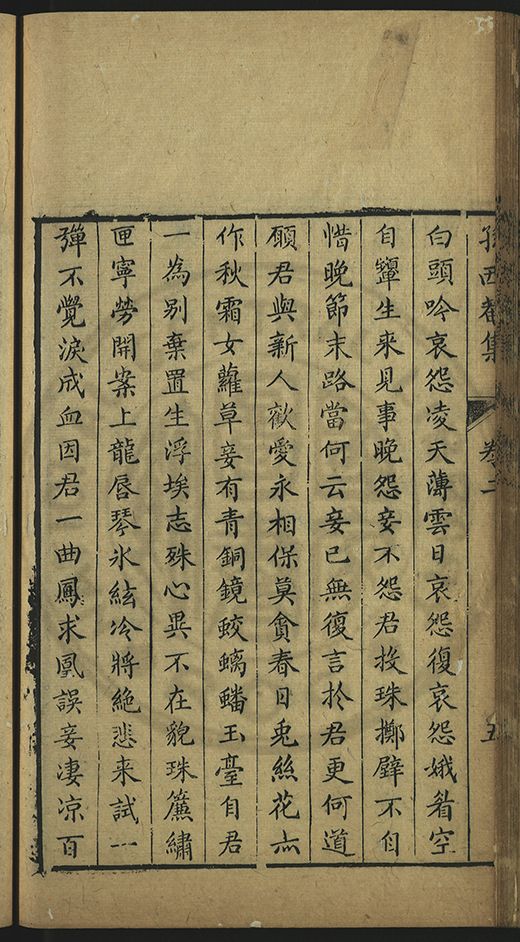 孫西菴集 卷二 五
白頭吟哀怨凌天薄雲日哀怨復哀怨娥眉空
自顰生來見事晚怨妾不怨君投珠擲璧不自
惜晚節末路當何云妾已無復言於君更何道
願君與新人歡愛永相保莫貪春日兎絲花亦
作秋霜女蘿草妾有青銅鏡蛟螭蟠玉臺自君
一為别棄置生浮埃志殊心異不在貌珠簾繡
匣寧勞開案上龍唇琴氷絃冷將絶悲来試一
彈不覺淚成血因君一曲鳳求凰誤妾凄凉百